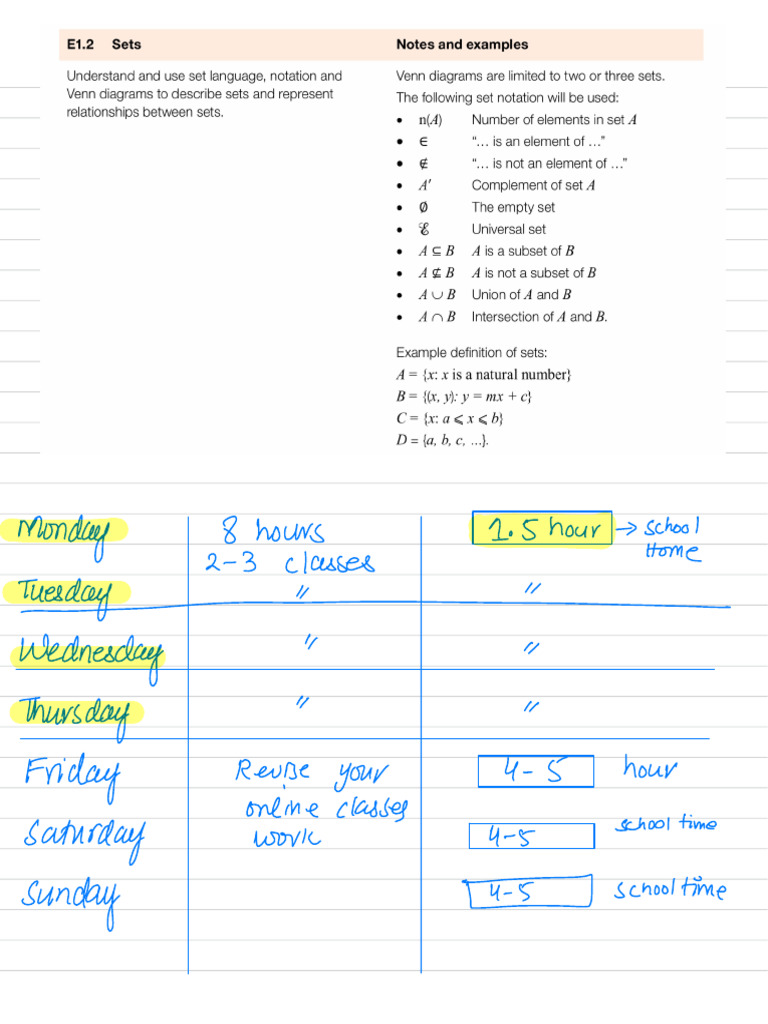 E1.2 Sets
Notes and examples
Understand and use set language, notation and
Venn diagrams to describe sets and represent
relationships between sets.
Venn diagrams are limited to two or three sets.
The following set notation will be used:
• n(A) Number of elements in set A
• ∈ “… is an element of …”
• ∉ “… is not an element of …”
• A′ Complement of set A
• Ø The empty set
• ℰ Universal set
• A ⊆ B A is a subset of B
• A ⊈ B A is not a subset of B
• A ∪ B Union of A and B
• A ∩ B Intersection of A and B.
Example definition of sets:
A = {x: x is a natural number}
B = {(x, y): y = mx + c}
C = {x: a ⩽ x ⩽ b}
D = {a, b, c, …}.
Monday 8 hours 1.5 hour → school
2-3 classes Home
Tuesday " "
Wednesday " "
Thursday " "
Friday Revise your 4-5 hour
online classes
Saturday work 4-5 school time
Sunday 4-5 school time